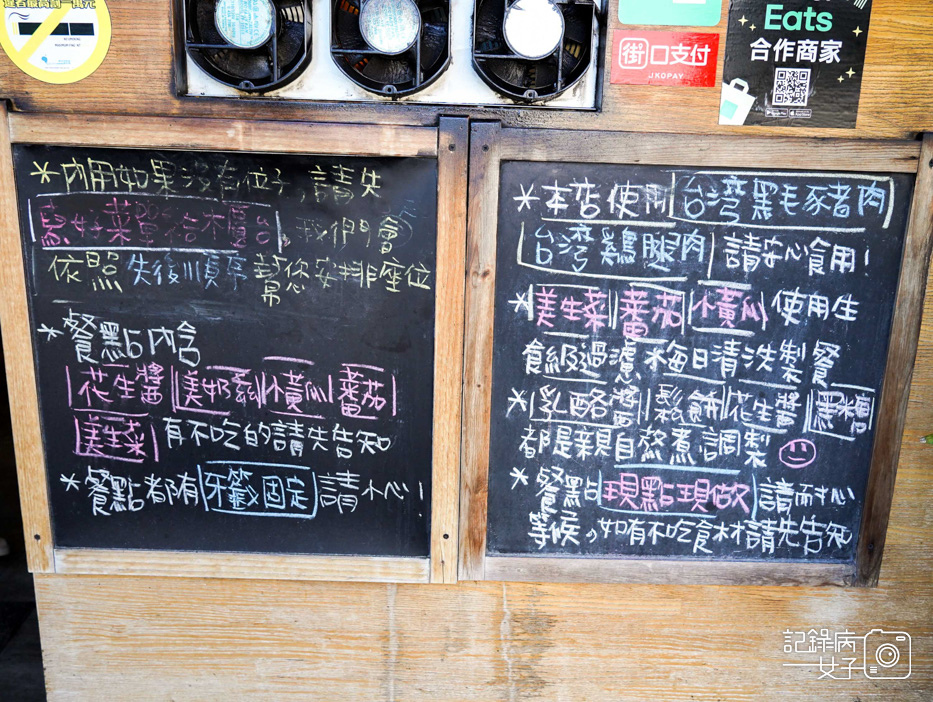 Eats
合作商家
街口支付
JKOPAY
*內用如果沒有位子,請先
點好菜單給櫃台 我們會
依照先後順序幫您安排座位
*餐點內含
花生醬 美奶滋 小黃瓜 蕃茄
美生菜 有不吃的請先告知
*餐點都有牙籤固定請小心!
*本店使用台灣黑毛豬肉
台灣雞腿肉 請安心食用!
*美生菜 蕃茄 小黃瓜 使用生
飲級過濾水每日清洗製餐
*乳酪醬 鬆餅 花生醬 黑糖
都是親自熬煮調製
*餐點現點現做 請耐心
等候,如有不吃食材請先告知
記錄病
女子